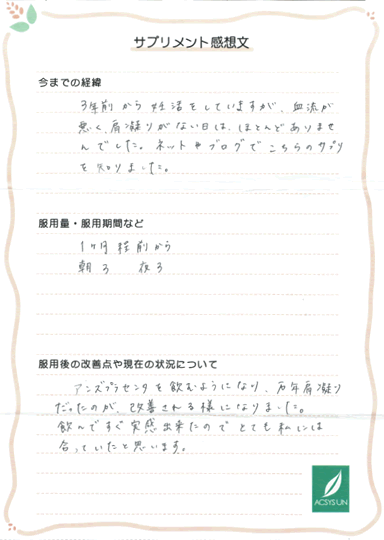 サプリメント感想文
今までの経緯
3年前から妊活をしていますが、血流が
悪く、肩凝りがない日は、ほとんどありませ
んでした。ネットやブログでこちらのサプリ
を知りました。
服用量・服用期間など
1ヶ月程前から
朝3 夜3
服用後の改善点や現在の状況について
アンズプラセンタを飲むようになり、万年肩凝り
だったのが、改善される様になりました。
飲んですぐ実感出来たのでとても私には
合っていたと思います。
ACSYSUN